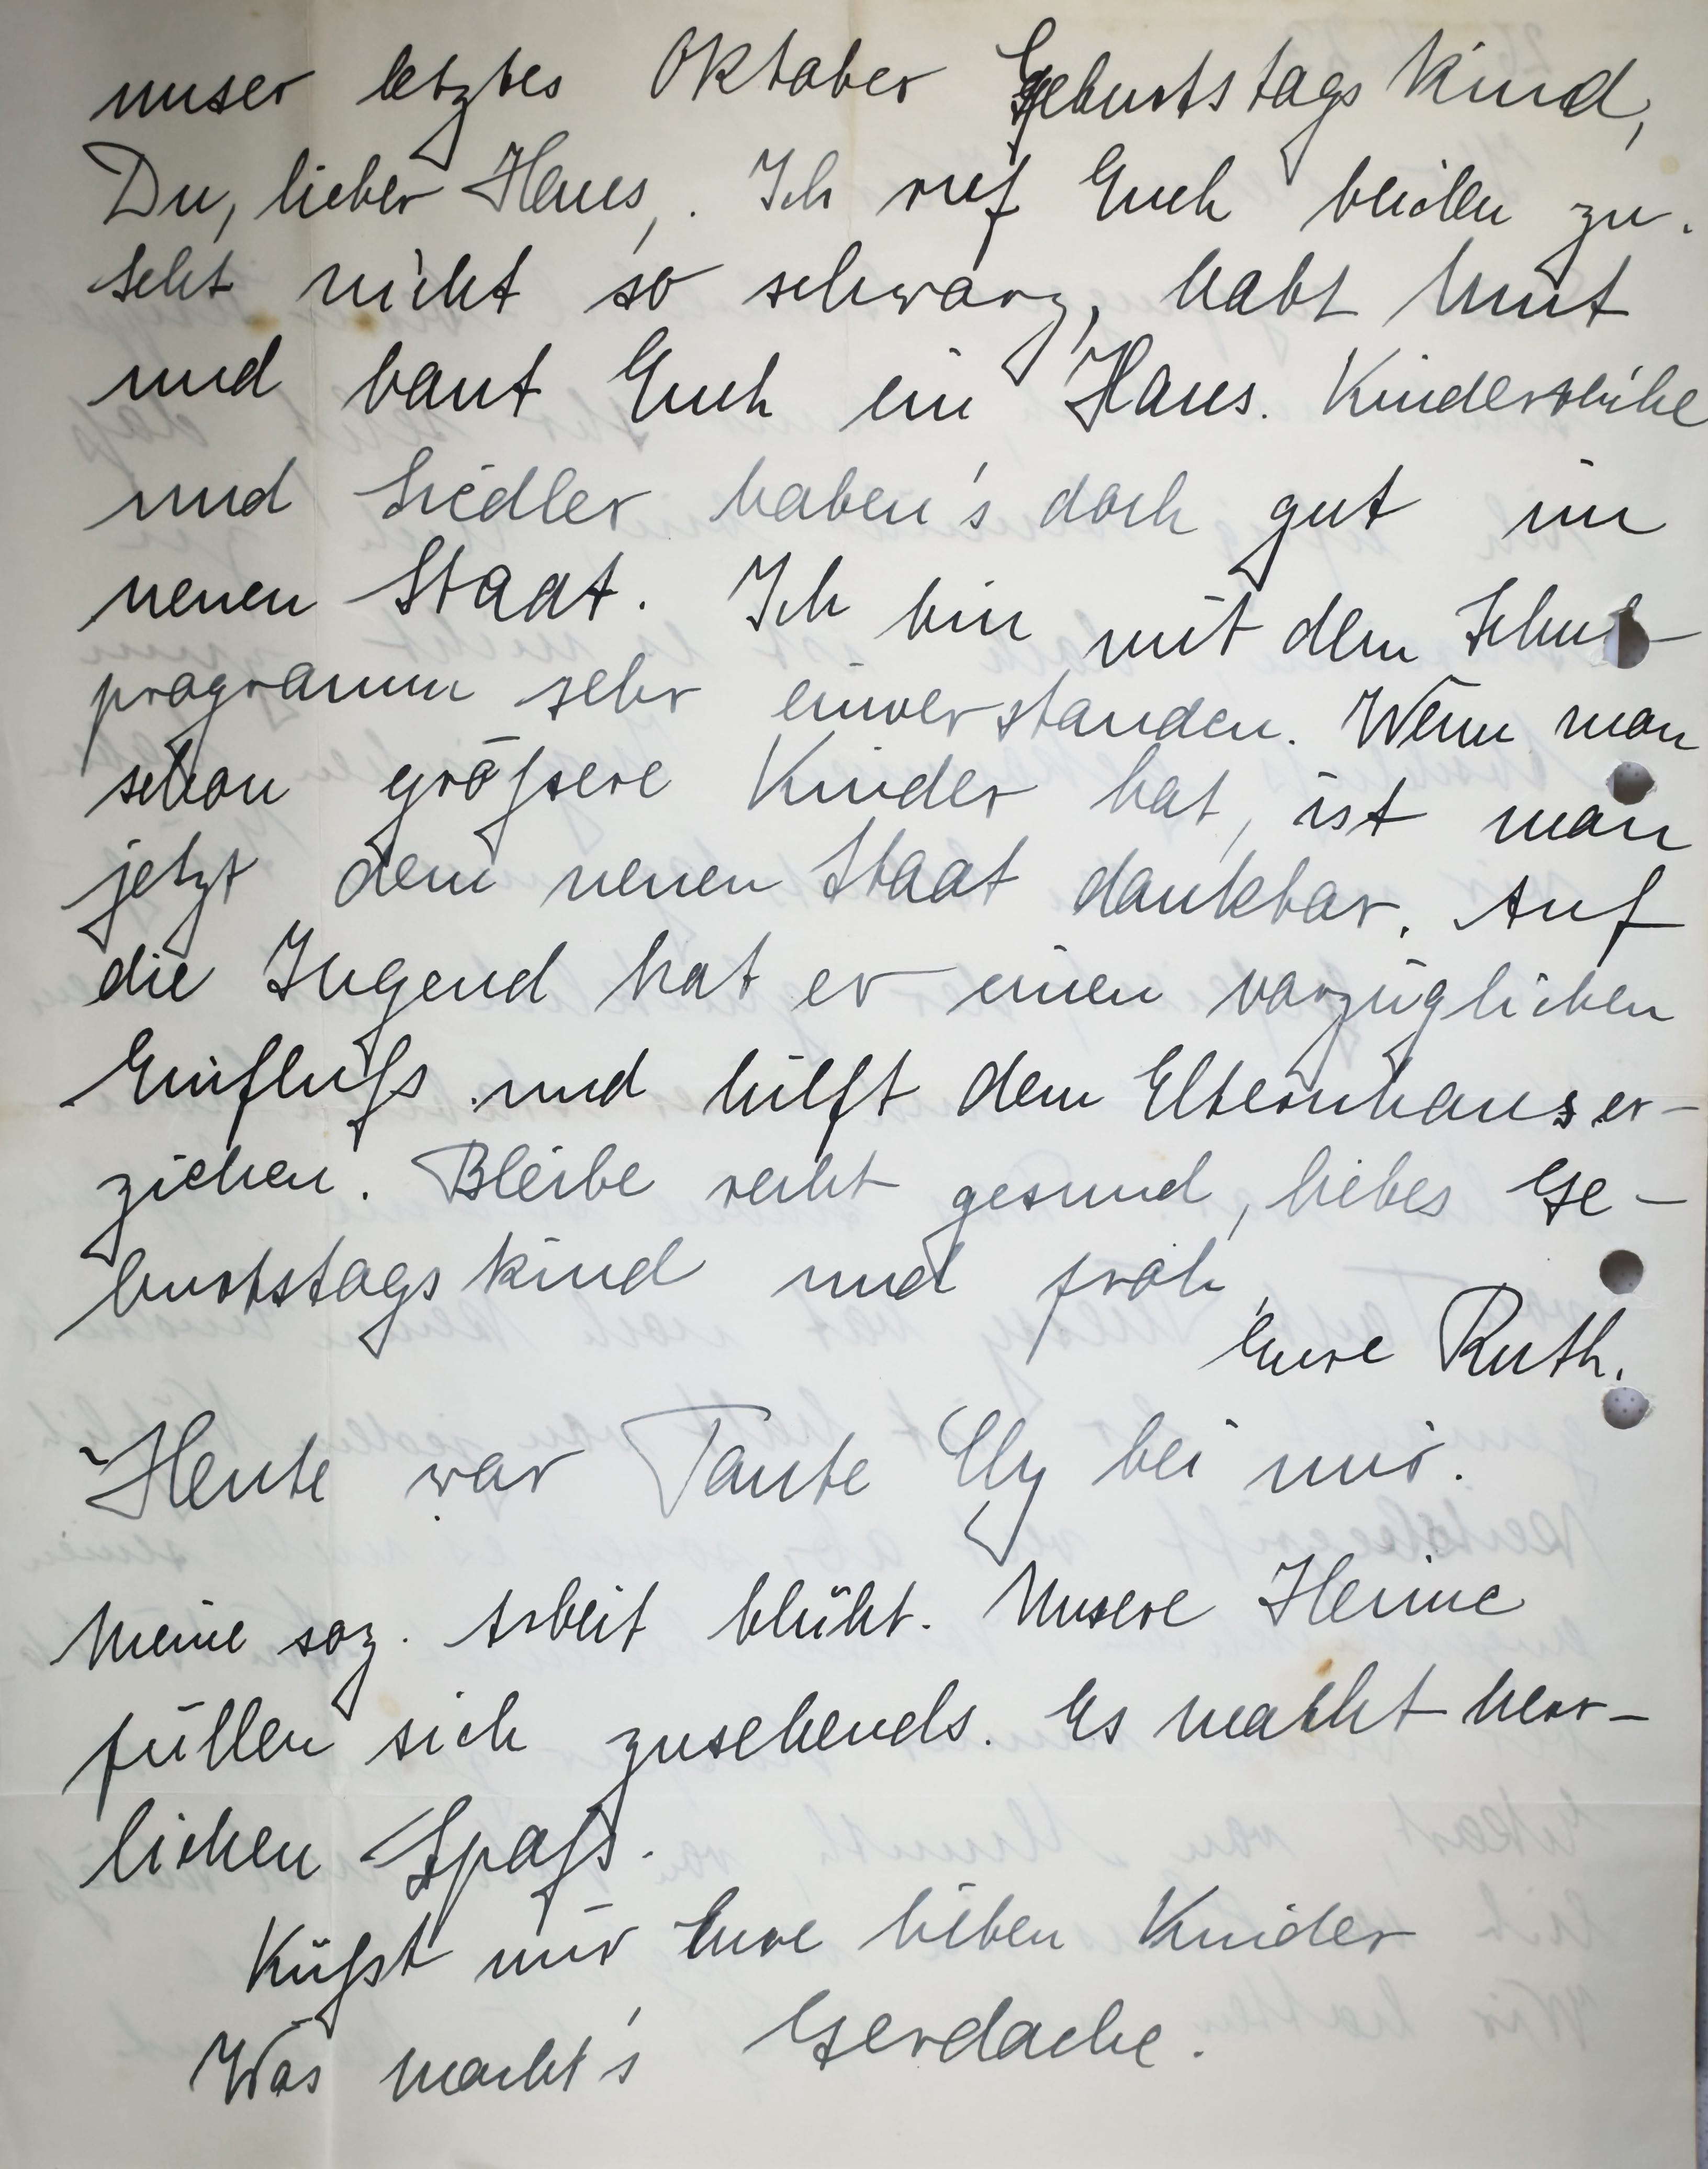 unser letztes Oktober Geburtstagskind,
Du, lieber Hans,. Ich ruf Euch beiden zu.
seht nicht so schwarz, habt Mut
und baut Euch ein Haus. Kinderreiche
und Siedler haben's doch gut im
neuen Staat. Ich bin mit dem Schul-
programm sehr einverstanden. Wenn man
schon größere Kinder hat, ist man
jetzt dem neuen Staat dankbar. Auf
die Jugend hat er einen vorzüglichen
Einfluß und hilft dem Elternhaus er-
ziehen. Bleibe recht gesund, liebes Ge-
burtstagskind und froh,
Eure Ruth.
Heute war Tante Elly bei mir.
Meine soz. Arbeit blüht. Unsere Heime
füllen sich zusehends. Es macht herr-
lichen Spaß.
Küßt mir Eure lieben Kinder
Was macht's Gerdache.